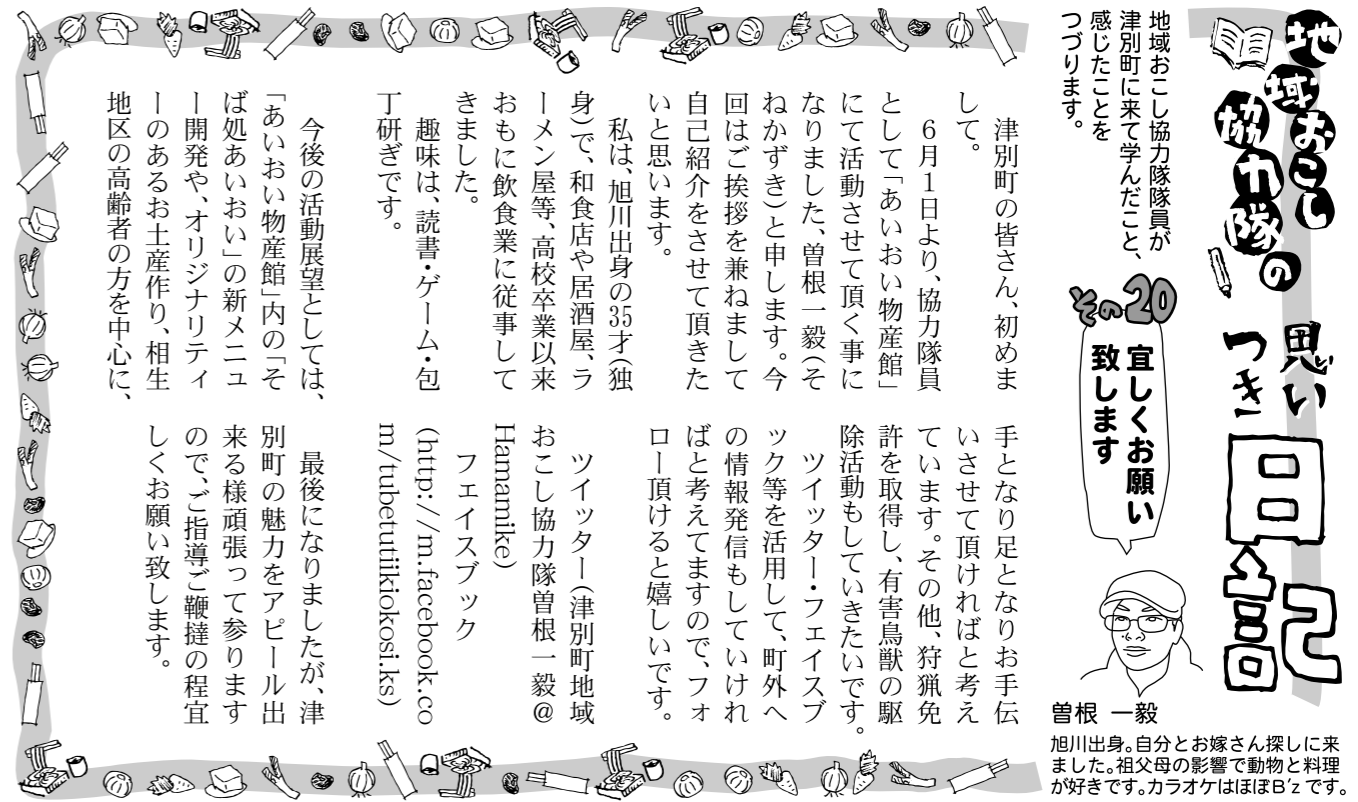 地域おこし協力隊の
思いつき
日記
地域おこし協力隊隊員が
津別町に来て学んだこと、
感じたことを
つづります。
その20
宜しくお願い
致します
曽根 一毅
旭川出身。自分とお嫁さん探しに来
ました。祖父母の影響で動物と料理
が好きです。カラオケはほぼB'zです。
津別町の皆さん、初めま
して。
6月1日より、協力隊員
として「あいおい物産館」
にて活動させて頂く事に
なりました、曽根一毅(そ
ねかずき)と申します。今
回はご挨拶を兼ねまして
自己紹介をさせて頂きた
いと思います。
私は、旭川出身の35才(独
身)で、和食店や居酒屋、ラ
ーメン屋等、高校卒業以来
おもに飲食業に従事して
きました。
趣味は、読書・ゲーム・包
丁研ぎです。
今後の活動展望としては、
「あいおい物産館」内の「そ
ば処あいおい」の新メニュ
ー開発や、オリジナリティ
ーのあるお土産作り、相生
地区の高齢者の方を中心に、
手となり足となりお手伝
いさせて頂ければと考え
ています。その他、狩猟免
許を取得し、有害鳥獣の駆
除活動もしていきたいです。
ツイッター・フェイスブ
ック等を活用して、町外へ
の情報発信もしていけれ
ばと考えてますので、フォ
ロー頂けると嬉しいです。
ツイッター(津別町地域
おこし協力隊曽根一毅@
Hamamike)
フェイスブック
(http://m.facebook.co
m/tubetutiikiokosi.ks)
最後になりましたが、津
別町の魅力をアピール出
来る様頑張って参ります
ので、ご指導ご鞭撻の程宜
しくお願い致します。